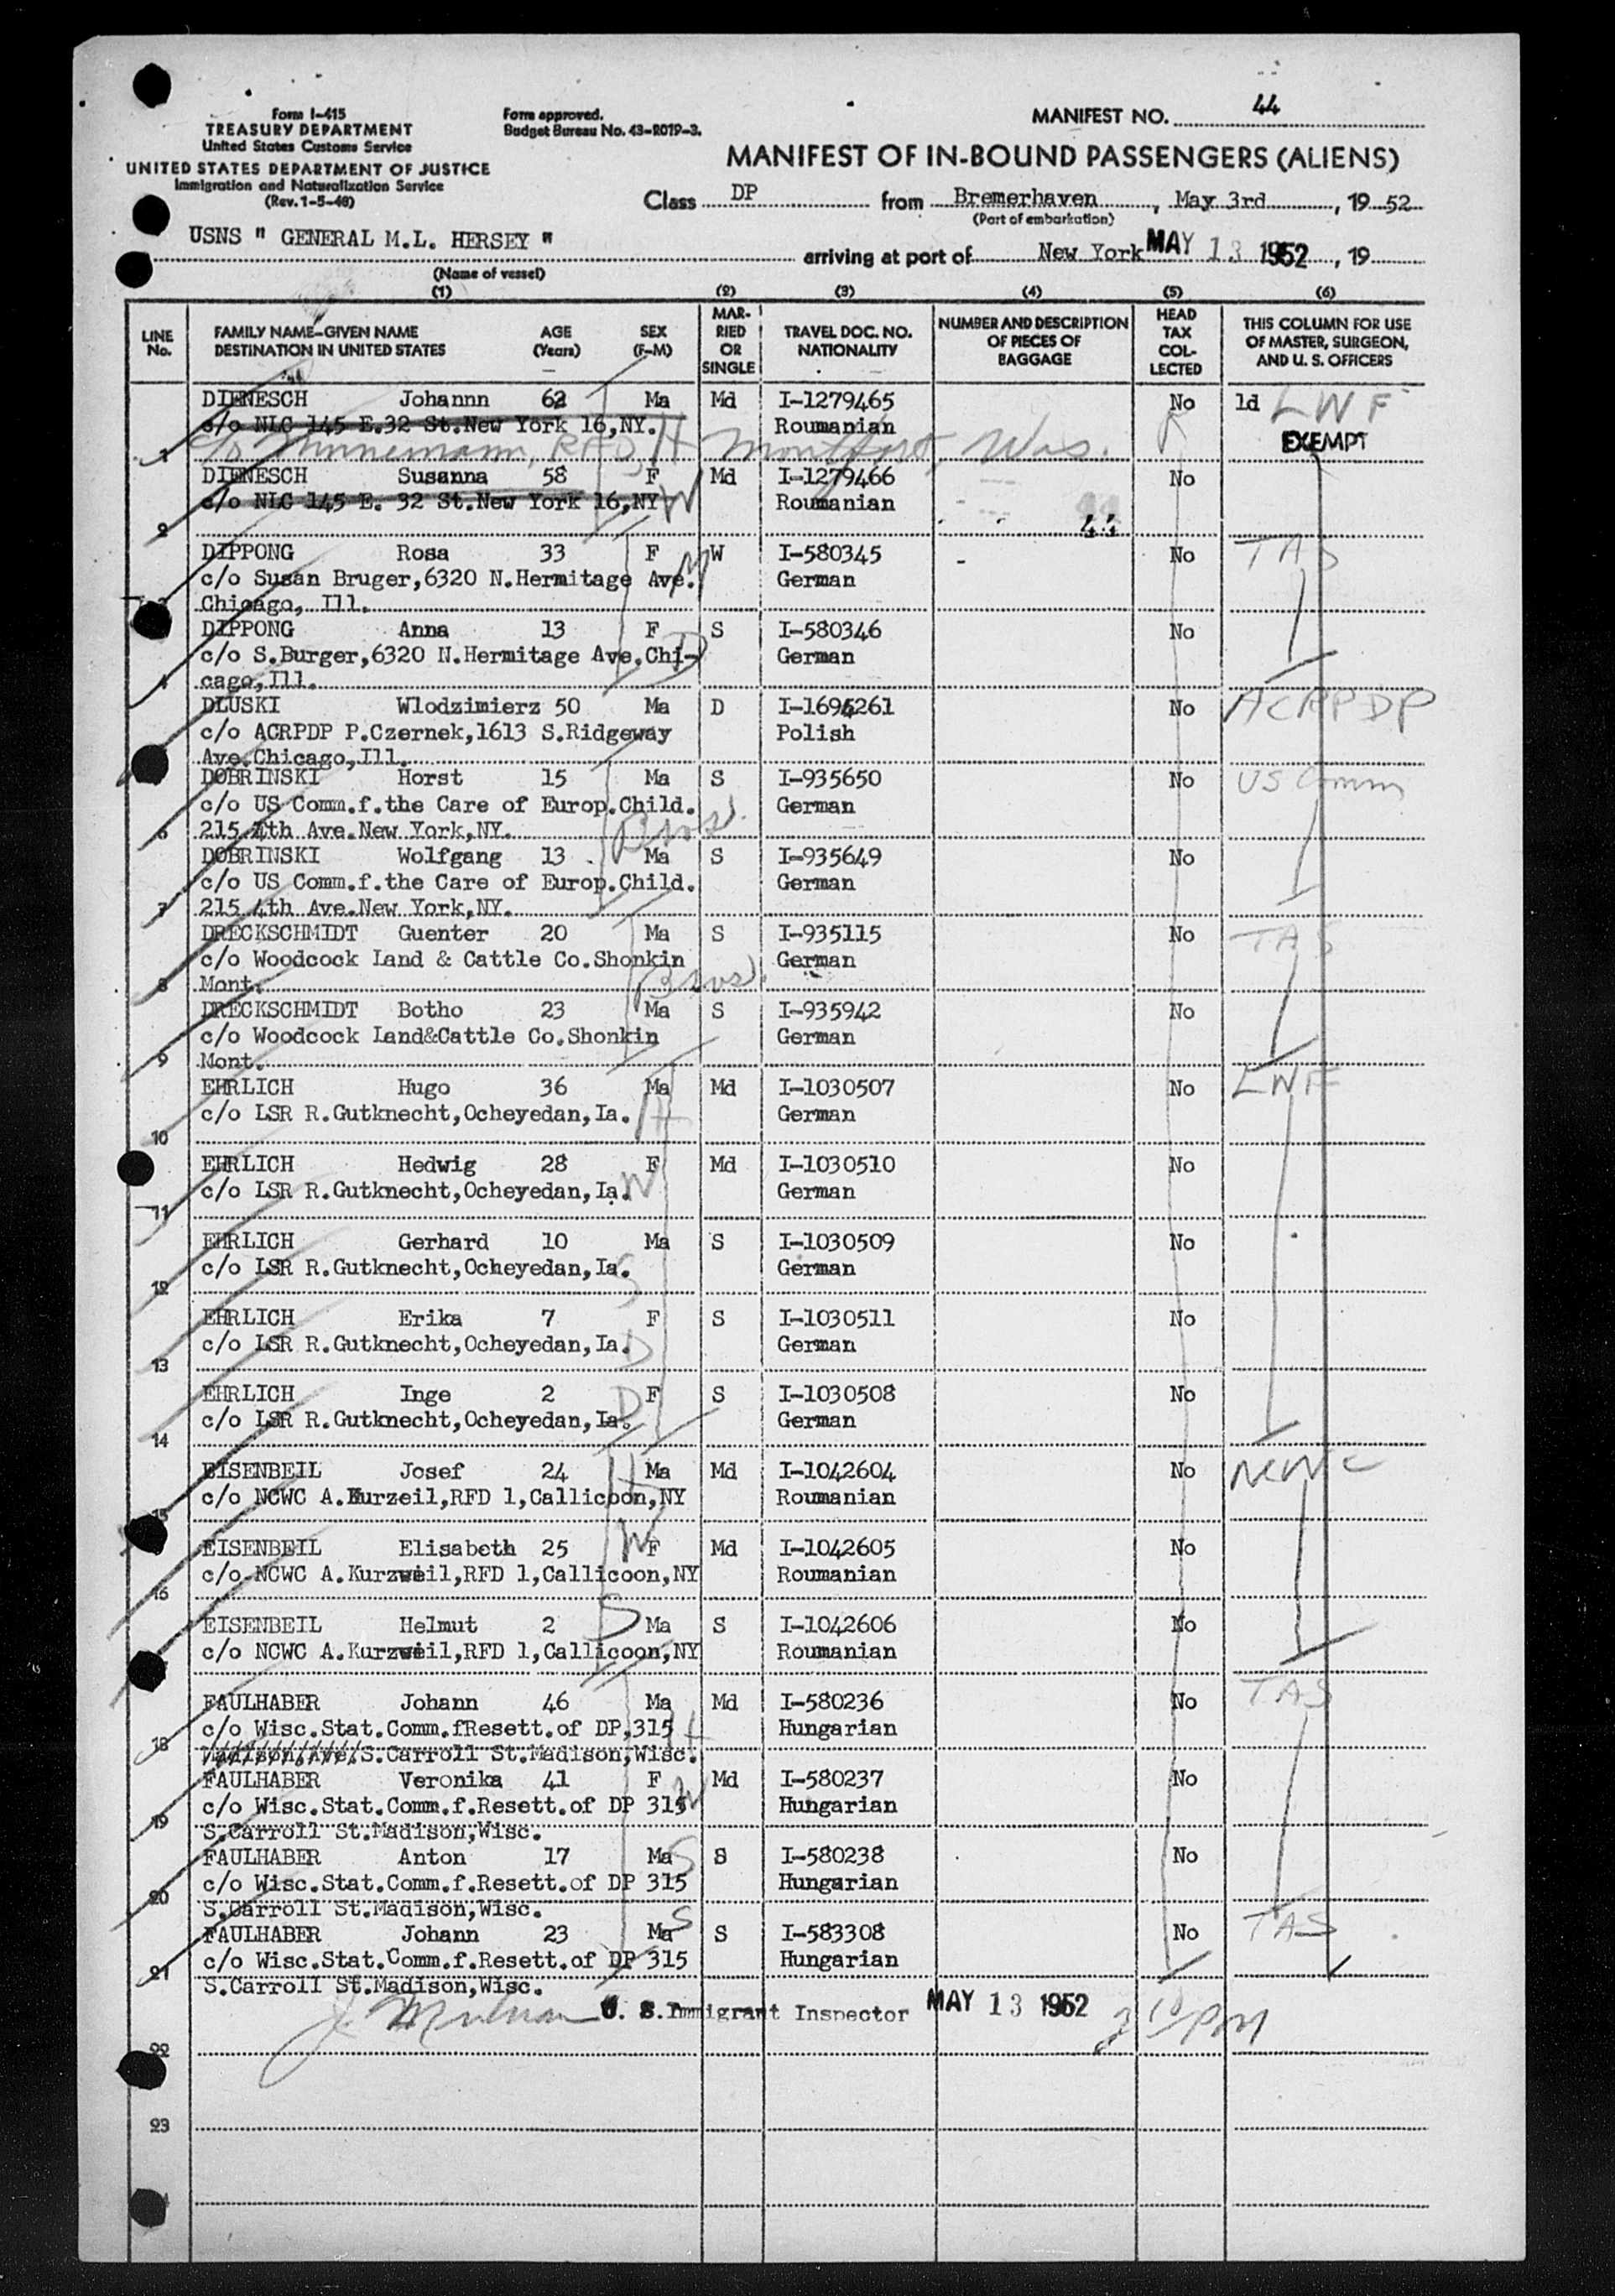 Form I-415
TREASURY DEPARTMENT
United States Customs Service
UNITED STATES DEPARTMENT OF JUSTICE
Immigration and Naturalization Service
(Rev. 1-5-48)
Form approved.
Budget Bureau No. 43-R019-3.
MANIFEST NO. 44
MANIFEST OF IN-BOUND PASSENGERS (ALIENS)
Class DP from Bremerhaven, May 3rd, 19 52
(Port of embarkation)
USNS " GENERAL M.L. HERSEY "
arriving at port of New York MAY 13 1952, 19
(Name of vessel)
(1) (2) (3) (4) (5) (6)
LINE No. FAMILY NAME-GIVEN NAME DESTINATION IN UNITED STATES AGE (Years) SEX (F-M) MARRIED OR SINGLE TRAVEL DOC. NO. NATIONALITY NUMBER AND DESCRIPTION OF PIECES OF BAGGAGE HEAD TAX COLLECTED THIS COLUMN FOR USE OF MASTER, SURGEON, AND U. S. OFFICERS
DIENESCH Johannn 62 Ma Md I-1279465 No ld LWF
c/o NLC 145 E.32 St.New York 16,NY. Roumanian EXEMPT
1 c/o Minnemann, RFD, Montfort, Wis. H
DIENESCH Susanna 58 F Md I-1279466 No
c/o NLC 145 E. 32 St.New York 16,NY W Roumanian
2 44
DIPPONG Rosa 33 F W I-580345 No TAS
c/o Susan Bruger,6320 N.Hermitage Ave. M German
Chicago, Ill.
DIPPONG Anna 13 F S I-580346 No
c/o S.Burger,6320 N.Hermitage Ave.Chi- D German
4 cago,Ill.
DLUSKI Wlodzimierz 50 Ma D I-1694261 No ACRPDP
c/o ACRPDP P.Czernek,1613 S.Ridgeway Polish
Ave.Chicago,Ill.
DOBRINSKI Horst 15 Ma S I-935650 No US Comm
c/o US Comm.f.the Care of Europ.Child. German
6 215 4th Ave.New York,NY. Bros.
DOBRINSKI Wolfgang 13 Ma S I-935649 No
c/o US Comm.f.the Care of Europ.Child. German
7 215 4th Ave.New York,NY.
DRECKSCHMIDT Guenter 20 Ma S I-935115 No TAS
c/o Woodcock Land & Cattle Co.Shonkin German
8 Mont. Bros.
DRECKSCHMIDT Botho 23 Ma S I-935942 No
c/o Woodcock Land&Cattle Co.Shonkin German
9 Mont.
EHRLICH Hugo 36 Ma Md I-1030507 No LWF
c/o LSR R.Gutknecht,Ocheyedan,Ia. H German
10
EHRLICH Hedwig 28 F Md I-1030510 No
c/o LSR R.Gutknecht,Ocheyedan,Ia. W German
11
EHRLICH Gerhard 10 Ma S I-1030509 No
c/o LSR R.Gutknecht,Ocheyedan,Ia. S German
12
EHRLICH Erika 7 F S I-1030511 No
c/o LSR R.Gutknecht,Ocheyedan,Ia. D German
13
EHRLICH Inge 2 F S I-1030508 No
c/o LSR R.Gutknecht,Ocheyedan,Ia. D German
14
EISENBEIL Josef 24 H Ma Md I-1042604 No NCWC
c/o NCWC A.Kurzeil,RFD 1,Callicoon,NY Roumanian
15
EISENBEIL Elisabeth 25 W F Md I-1042605 No
c/o NCWC A.Kurzweil,RFD 1,Callicoon,NY Roumanian
16
EISENBEIL Helmut 2 S Ma S I-1042606 No
c/o NCWC A.Kurzweil,RFD 1,Callicoon,NY Roumanian
FAULHABER Johann 46 Ma Md I-580236 No TAS
c/o Wisc.Stat.Comm.fResett.of DP,315 H Hungarian
18 Madison Ave/S.Carroll St.Madison,Wisc.
FAULHABER Veronika 41 F Md I-580237 No
c/o Wisc.Stat.Comm.f.Resett.of DP 315 W Hungarian
19 S.Carroll St.Madison,Wisc.
FAULHABER Anton 17 Ma S S I-580238 No
c/o Wisc.Stat.Comm.f.Resett.of DP 315 Hungarian
20 S.Carroll St.Madison,Wisc.
FAULHABER Johann 23 Ma S S I-583308 No TAS
c/o Wisc.Stat.Comm.f.Resett.of DP 315 Hungarian
21 S.Carroll St.Madison,Wisc.
J. U. S. Immigrant Inspector MAY 13 1952 PM
22
23